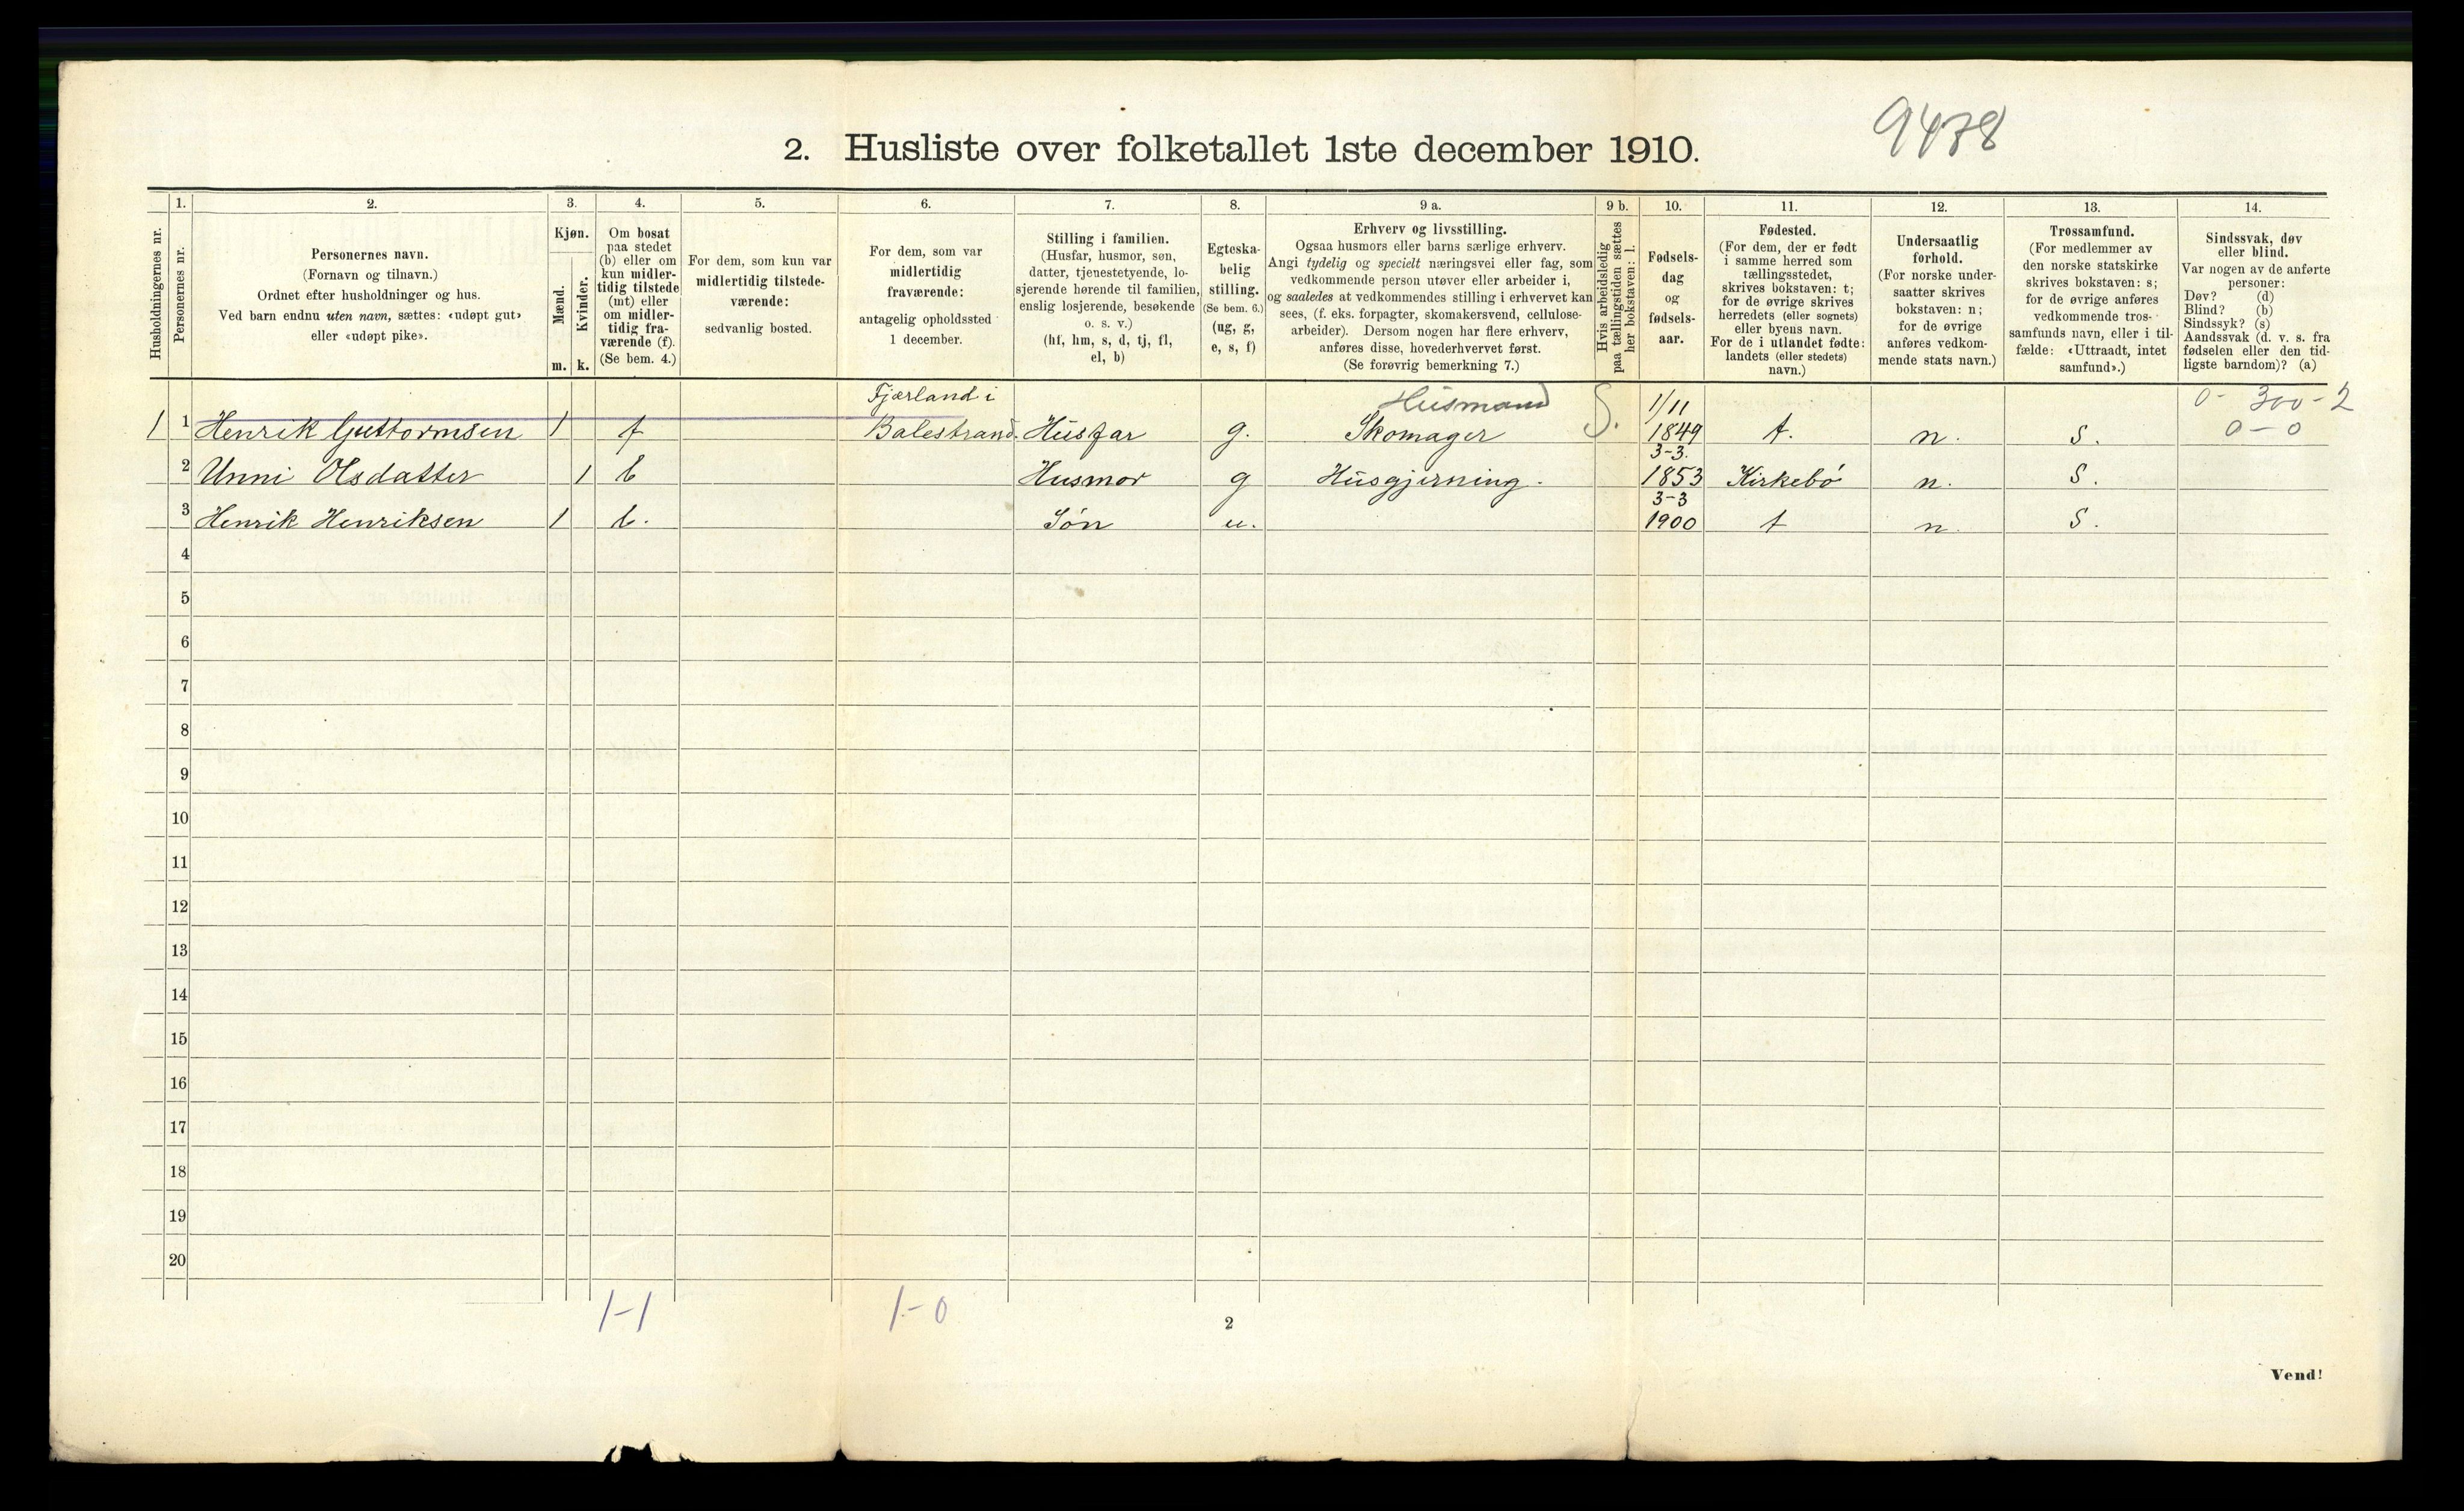 9478
2. Husliste over folketallet 1ste december 1910.
Husholdningernes nr.
1.
Personernes nr.
2.
Personernes navn.
(Fornavn og tilnavn.)
Ordnet efter husholdninger og hus.
Ved barn endnu uten navn, sættes: «udøpt gut»
eller «udøpt pike».
3.
Kjøn.
Mænd.
Kvinder.
m. k.
4.
Om bosat
paa stedet
(b) eller om
kun midler-
tidig tilstede
(mt) eller
om midler-
tidig fra-
værende (f).
(Se bem. 4.)
5.
For dem, som kun var
midlertidig tilstede-
værende:
sedvanlig bosted.
6.
For dem, som var
midlertidig
fraværende:
antagelig opholdssted
1 december.
7.
Stilling i familien.
(Husfar, husmor, søn,
datter, tjenestetyende, lo-
sjerende hørende til familien,
enslig losjerende, besøkende
o. s. v.)
(hf, hm, s, d, tj, fl,
el, b)
8.
Egteska-
belig
stilling.
(Se bem. 6.)
(ug, g,
e, s, f)
9 a.
Erhverv og livsstilling.
Ogsaa husmors eller barns særlige erhverv.
Angi tydelig og specielt næringsvei eller fag, som
vedkommende person utøver eller arbeider i,
og saaledes at vedkommendes stilling i erhvervet kan
sees, (f. eks. forpagter, skomakersvend, cellulose-
arbeider). Dersom nogen har flere erhverv,
anføres disse, hovederhvervet først.
(Se forøvrig bemerkning 7.)
9 b.
Hvis arbeidsledig
paa tællingstiden sættes
her bokstaven: l.
10.
Fødsels-
dag
og
fødsels-
aar.
11.
Fødested.
(For dem, der er født
i samme herred som
tællingsstedet,
skrives bokstaven: t;
for de øvrige skrives
herredets (eller sognets)
eller byens navn.
For de i utlandet fødte:
landets (eller stedets)
navn.)
12.
Undersaatlig
forhold.
(For norske under-
saatter skrives
bokstaven: n;
for de øvrige
anføres vedkom-
mende stats navn.)
13.
Trossamfund.
(For medlemmer av
den norske statskirke
skrives bokstaven: s;
for de øvrige anføres
vedkommende tros-
samfunds navn, eller i til-
fælde: «Uttraadt, intet
samfund».)
14.
Sindssvak, døv
eller blind.
Var nogen av de anførte
personer:
Døv? (d)
Blind? (b)
Sindssyk? (s)
Aandssvak (d. v. s. fra
fødselen eller den tid-
ligste barndom)? (a)
Fjærland i Husmand 1/11 0- 300-2
1 1 Henrik Guttormsen 1 f Balestrand. Husfar g. Skomager S. 1849 t. n. s. 0-0
3-3.
2 Unni Olsdatter 1 b Husmor g Husgjerning. 1853 Kirkebö n. s.
3-3
3 Henrik Henriksen 1 b. Søn u. 1900 t n. s.
4
5
6
7
8
9
10
11
12
13
14
15
16
17
18
19
20
1-1 1-0
2
Vend!